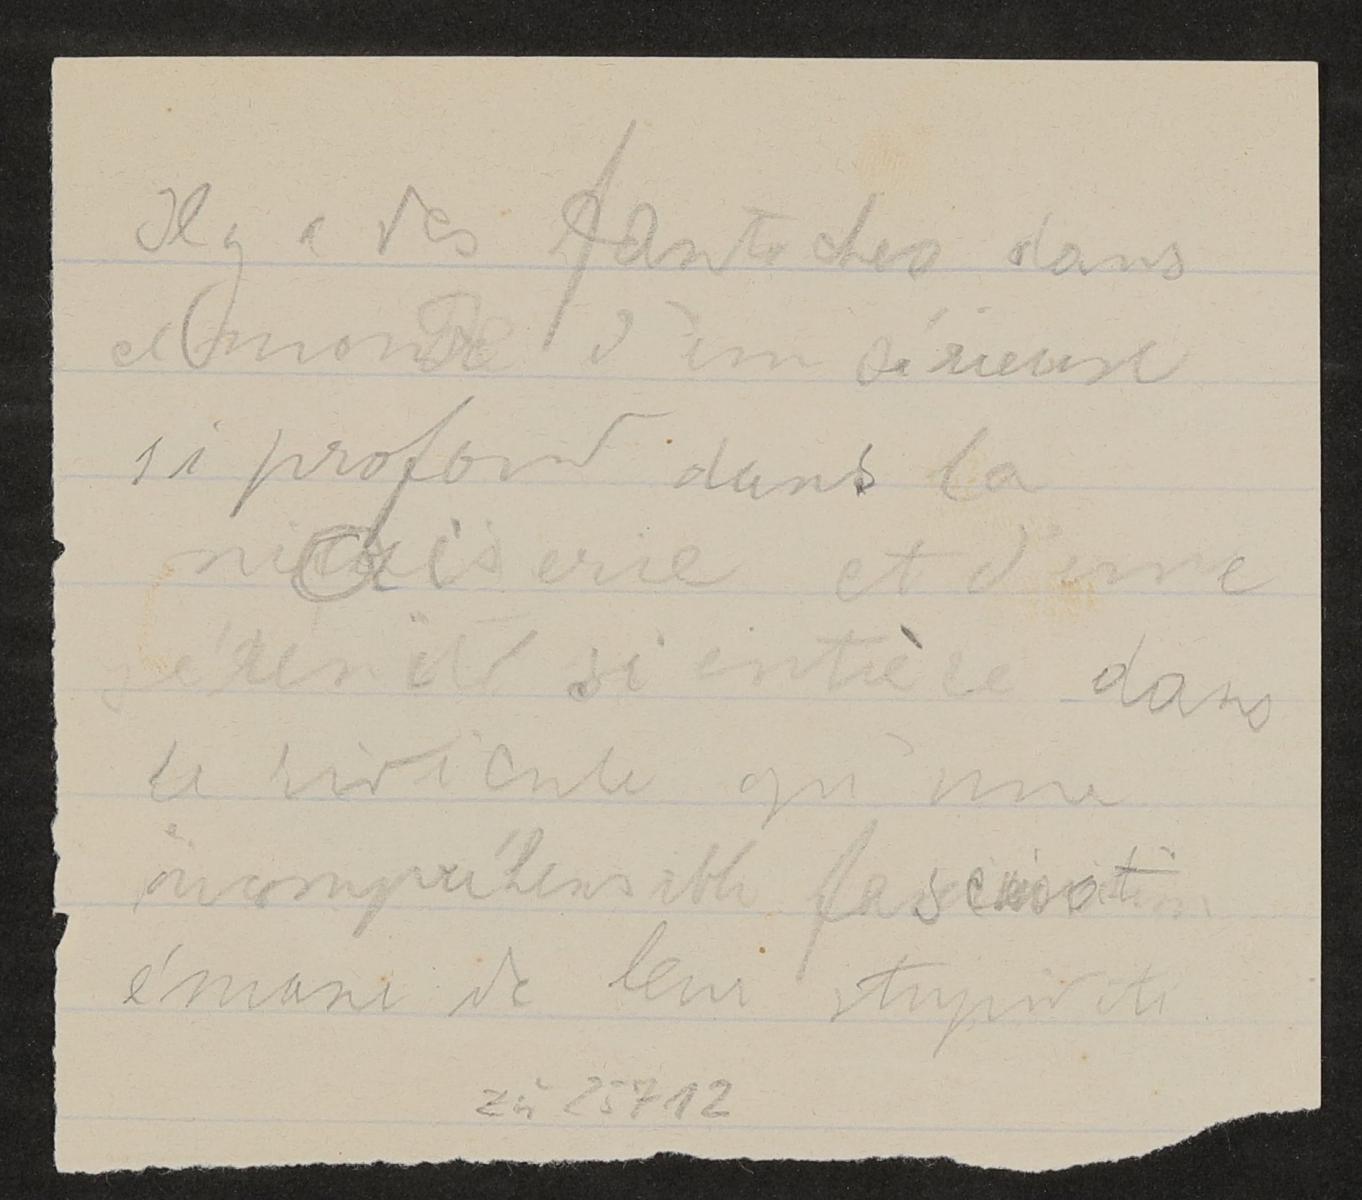 Il y a des fantoches dans
le monde d'un sérieuse
si profond dans la
niaiserie et d'une
sérénité si entière dans
le ridicule qu'une
incompréhensible fascination
émane de leur stupidité
zu 25712